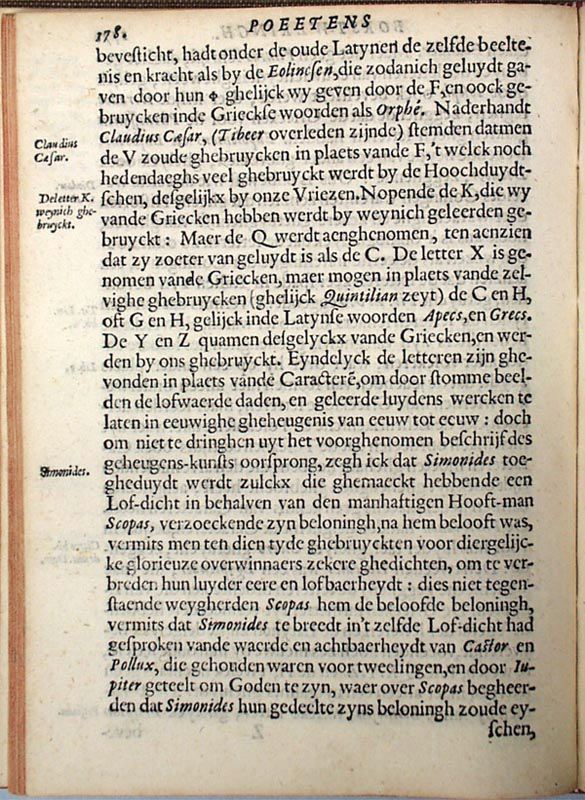 178.
POEETENS
bevesticht, hadt onder de oude Latynen de zelfde beelte-
nis en kracht als by de Eolinesen, die zodanich geluydt ga-
ven door hun Φ ghelijck wy geven door de F, en oock ge-
bruycken inde Grieckse woorden als Orphé. Naderhandt
Claudius Cæsar, (Tibeer overleden zijnde) stemden datmen
de V zoude ghebruycken in plaets vande F, 't welck noch
hedendaeghs veel ghebruyckt werdt by de Hoochduydt-
schen, desgelijkx by onze Vriezen. Nopende de K, die wy
vande Griecken hebben werdt by weynich geleerden ge-
bruyckt: Maer de Q werdt aenghenomen, ten aenzien
dat zy zoeter van geluydt is als de C. De letter X is ge-
nomen vande Griecken, maer mogen in plaets vande zel-
vighe ghebruycken (ghelijck Quintilian zeyt) de C en H,
oft G en H, gelijck inde Latynse woorden Apecs, en Grecs.
De Y en Z quamen desgelyckx vande Griecken, en wer-
den by ons ghebruyckt. Eyndelyck de letteren zijn ghe-
vonden in plaets vande Caracterē, om door stomme beel-
den de lofwaerde daden, en geleerde luydens wercken te
laten in eeuwighe gheheugenis van eeuw tot eeuw: doch
om niet te dringhen uyt het voorghenomen beschrijf des
geheugens-kunsts oorsprong, zegh ick dat Simonides toe-
gheduydt werdt zulckx die ghemaeckt hebbende een
Lof-dicht in behalven van den manhaftigen Hooft-man
Scopas, verzoeckende zyn beloningh, na hem belooft was,
vermits men ten dien tyde ghebruyckten voor diergelijc-
ke glorieuze overwinnaers zekere ghedichten, om te ver-
breden hun luyder eere en lofbaerheydt: dies niet tegen-
staende weygherden Scopas hem de beloofde beloningh,
vermits dat Simonides te breedt in't zelfde Lof-dicht had
gesproken vande waerde en achtbaerheydt van Castor en
Pollux, die gehouden waren voor tweelingen, en door Iu-
piter geteelt om Goden te zyn, waer over Scopas begheer-
den dat Simonides hun gedeelte zyns beloningh zoude ey-
schen,
Claudius
Cæsar.
De letter K.
weynich ghe-
bruyckt.
Simonides.